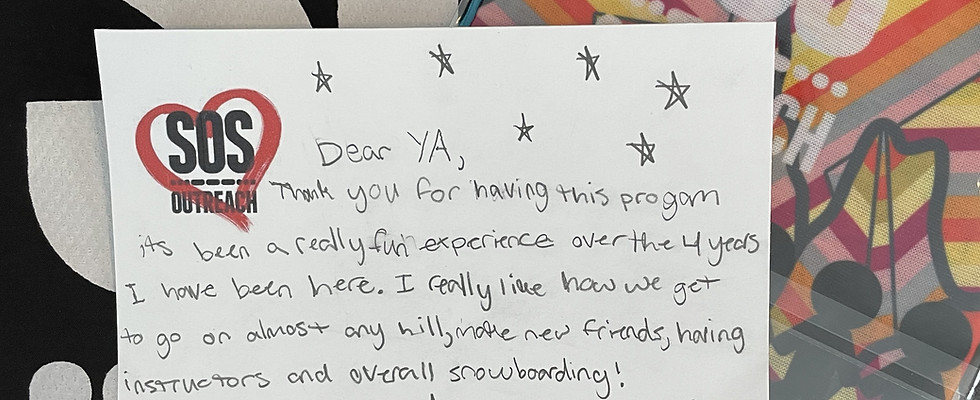 SOS
OUTREACH
Dear YA,
Thank you for having this progam
its been a really fun experience over the 4 years
I have been here. I really like how we get
to go on almost any hill, make new friends, having
instructors and overall snowboarding!
CH